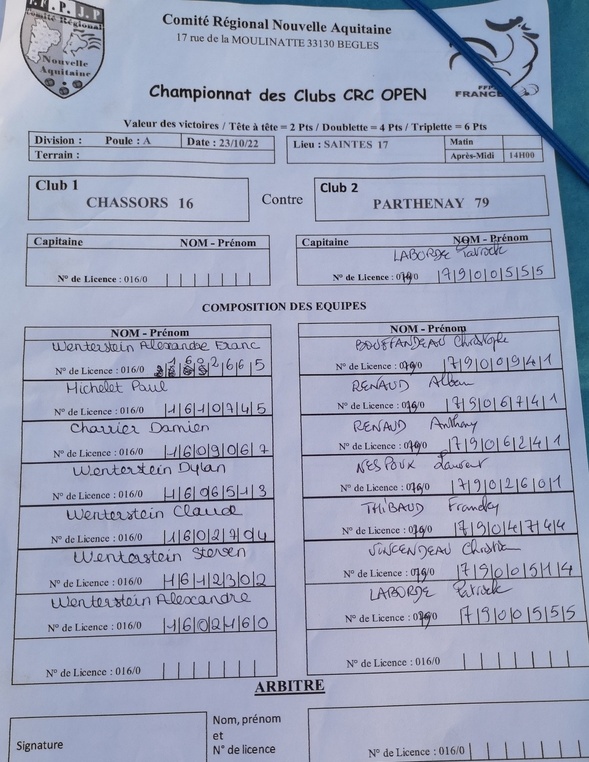 F.F.P.J.P
Comité Régional
Nouvelle
Aquitaine
Comité Régional Nouvelle Aquitaine
17 rue de la MOULINATTE 33130 BEGLES
FRANCE
Championnat des Clubs CRC OPEN
Valeur des victoires / Tête à tête = 2 Pts / Doublette = 4 Pts / Triplette = 6 Pts
Division : Poule : A Date : 23/10/22 Lieu : SAINTES 17 Matin
Terrain : Après-Midi 14H00
Club 1 Club 2
CHASSORS 16 Contre PARTHENAY 79
Capitaine NOM - Prénom Capitaine NOM - Prénom
LABORDE Patrick
N° de Licence : 016/0 N° de Licence : 7900555
COMPOSITION DES EQUIPES
NOM - Prénom NOM - Prénom
Wenterstein Alexandre Franc BOUFFANDEAU Christophe
N° de Licence : 016/0 1602665 N° de Licence : 7900941
Michelet Paul RENAUD Alban
N° de Licence : 016/0 1610745 N° de Licence : 7906741
Charrier Damien RENAUD Anthony
N° de Licence : 016/0 1609067 N° de Licence : 7906241
Wenterstein Dylan NESPOUX Laurent
N° de Licence : 016/0 1606513 N° de Licence : 7902601
Wenterstein Claude THIBAUD Francky
N° de Licence : 016/0 1602704 N° de Licence : 7904744
Wenterstein Steven VINCENDEAU Christian
N° de Licence : 016/0 1612302 N° de Licence : 7900514
Wenterstein Alexandre LABORDE Patrick
N° de Licence : 016/0 1602160 N° de Licence : 7900555
N° de Licence : 016/0 N° de Licence : 016/0
ARBITRE
Nom, prénom
et
Signature N° de licence N° de Licence : 016/0